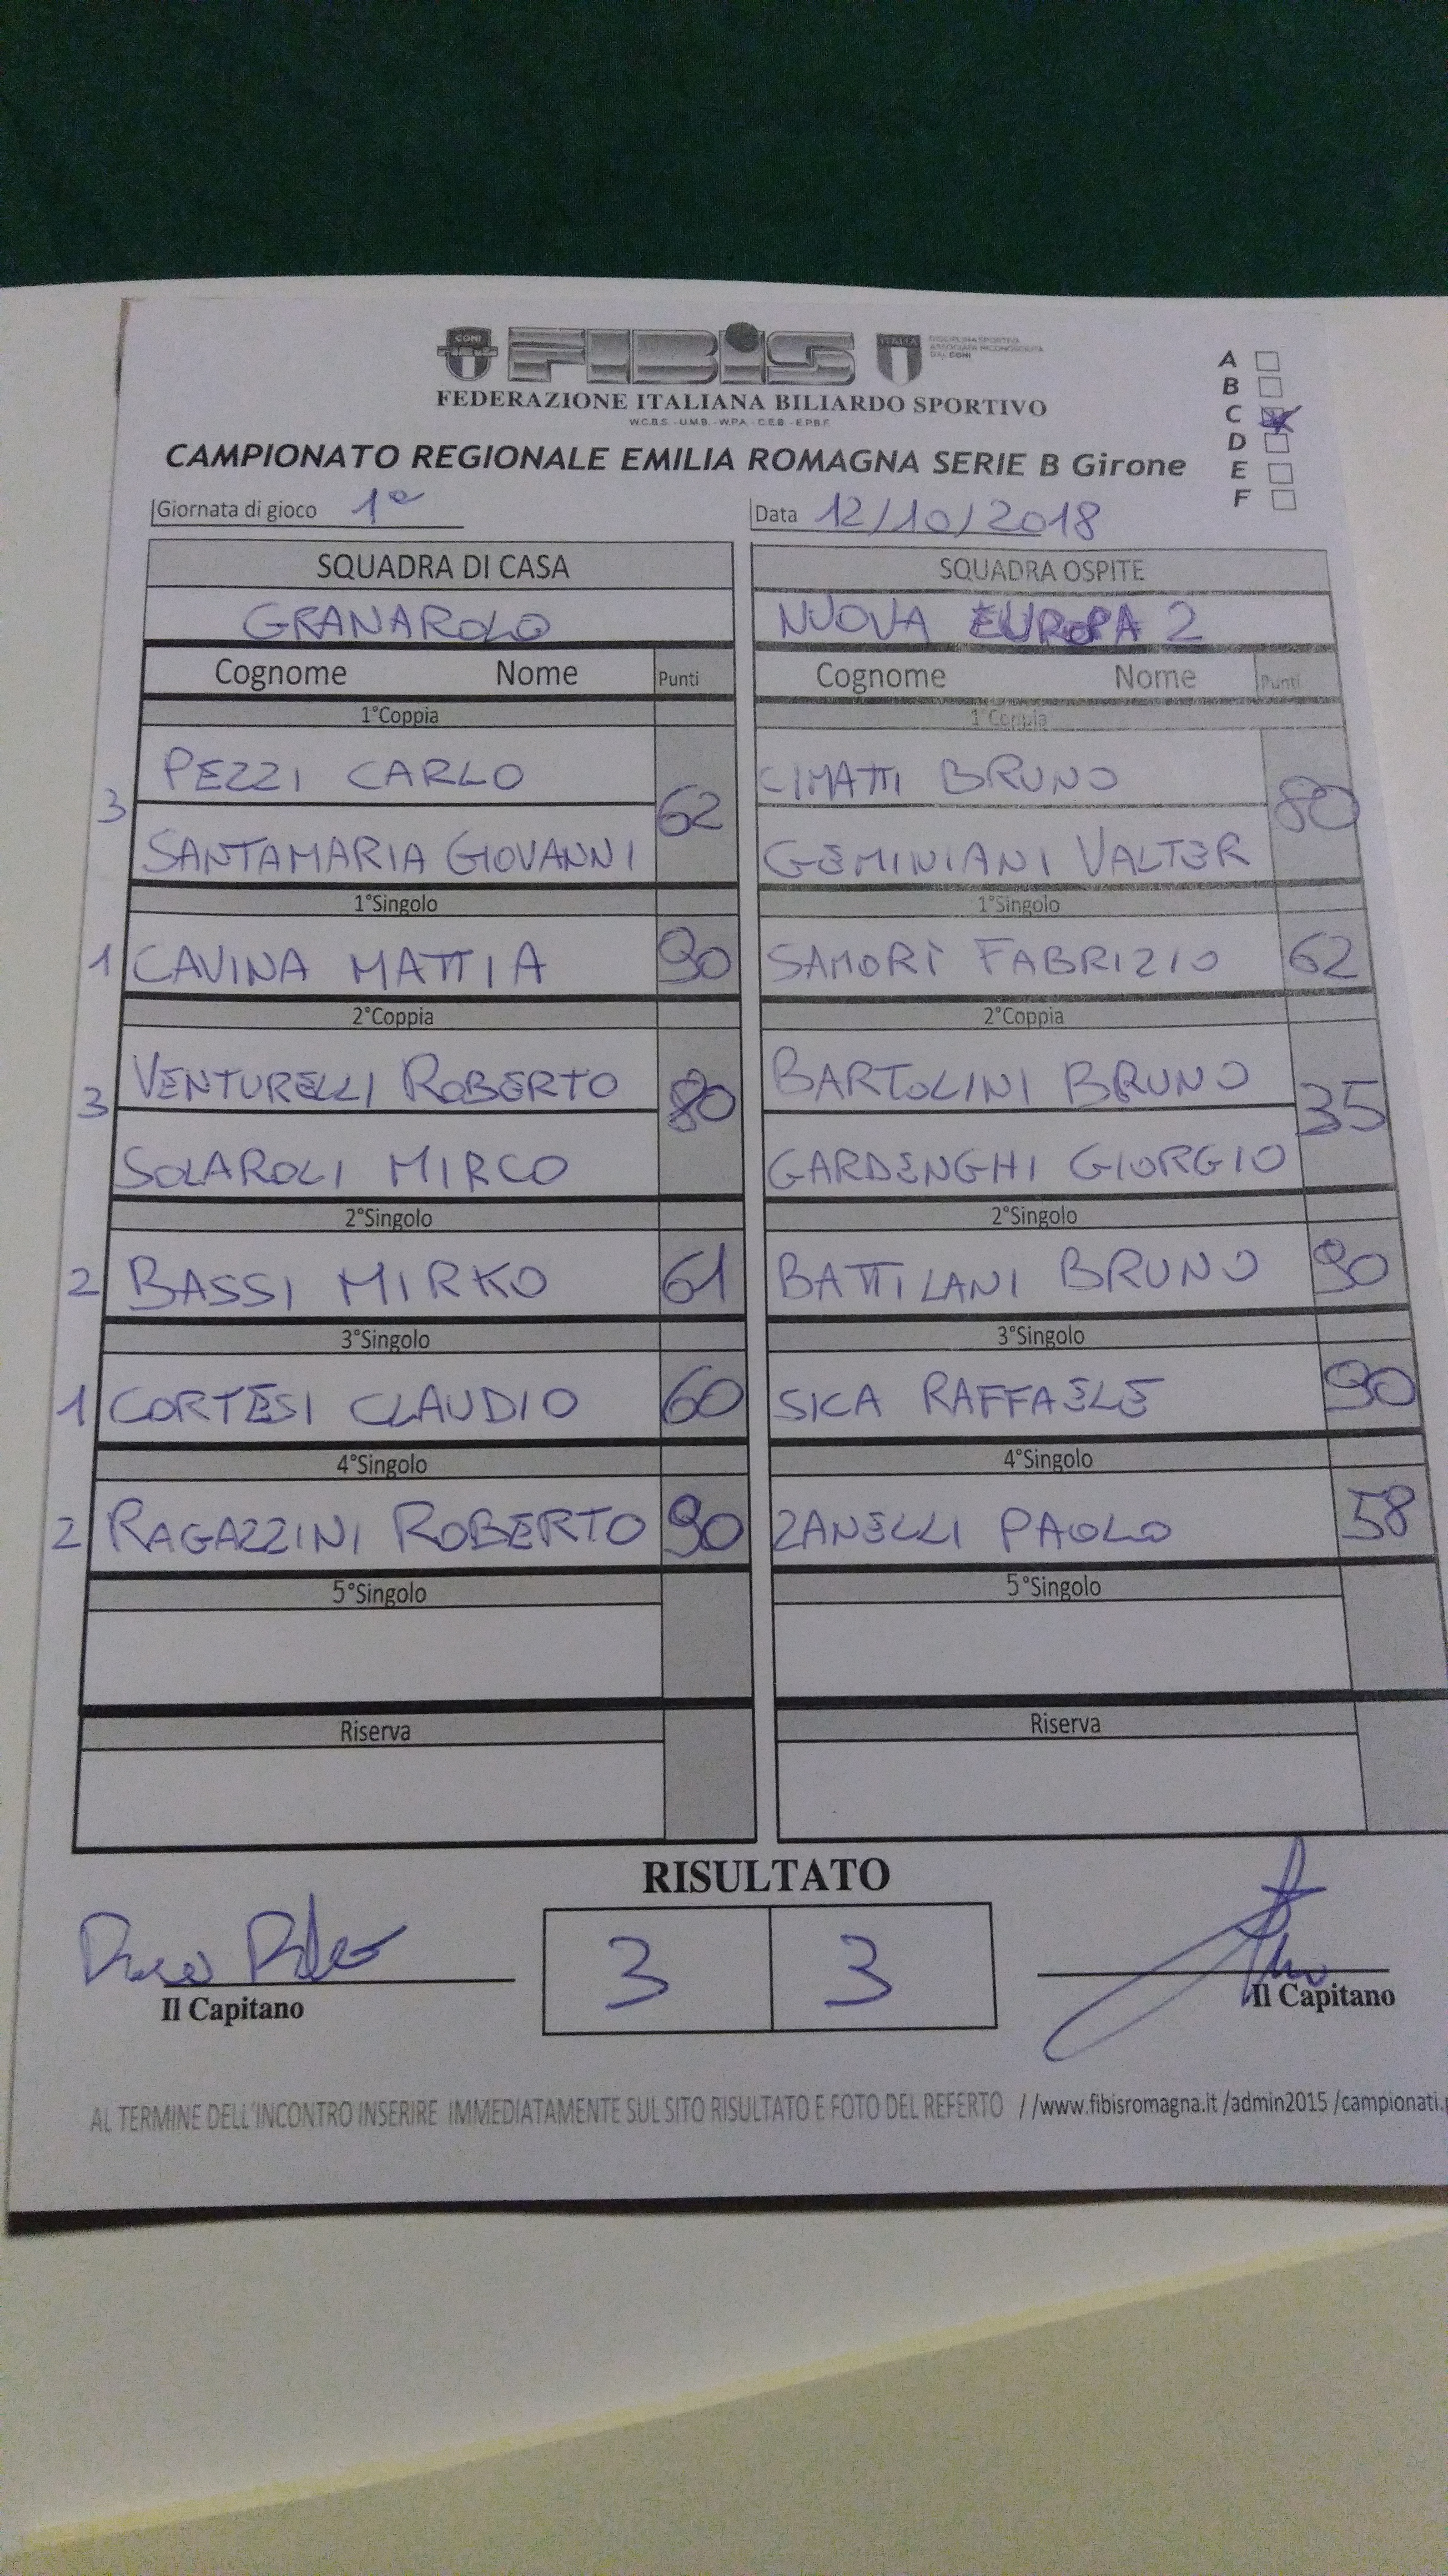 CONI
FIBIS
ITALIA
DISCIPLINA SPORTIVA
ASSOCIATA RICONOSCIUTA
DAL CONI
FEDERAZIONE ITALIANA BILIARDO SPORTIVO
W.C.B.S. - U.M.B. - W.P.A. - C.E.B. - E.P.B.F.
CAMPIONATO REGIONALE EMILIA ROMAGNA SERIE B Girone
A
B
C
D
E
F
Giornata di gioco 1ª
Data 12/10/2018
SQUADRA DI CASA SQUADRA OSPITE
GRANAROLO NUOVA EUROPA 2
Cognome Nome Punti Cognome Nome Punti
1°Coppia 1°Coppia
PEZZI CARLO CIMATTI BRUNO
3 62 80
SANTAMARIA GIOVANNI GEMINIANI VALTER
1°Singolo 1°Singolo
1 CAVINA MATTIA 90 SAMORÌ FABRIZIO 62
2°Coppia 2°Coppia
VENTURELLI ROBERTO BARTOLINI BRUNO
3 80 35
SOLAROLI MIRCO GARDENGHI GIORGIO
2°Singolo 2°Singolo
2 BASSI MIRKO 61 BATTILANI BRUNO 90
3°Singolo 3°Singolo
1 CORTESI CLAUDIO 60 SICA RAFFAELE 90
4°Singolo 4°Singolo
2 RAGAZZINI ROBERTO 90 ZANELLI PAOLO 58
5°Singolo 5°Singolo
Riserva Riserva
RISULTATO
3 3
Il Capitano Il Capitano
AL TERMINE DELL'INCONTRO INSERIRE IMMEDIATAMENTE SUL SITO RISULTATO E FOTO DEL REFERTO //www.fibisromagna.it /admin2015 /campionati.